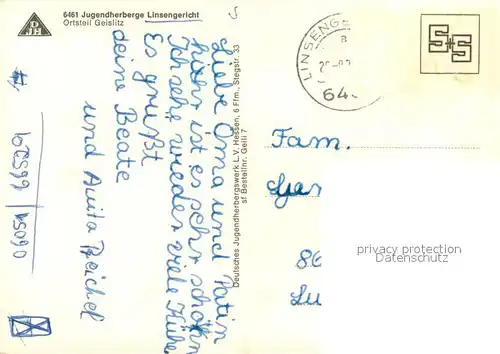 6461 Jugendherberge Linsengericht
Ortsteil Geislitz
DJH
Liebe Oma und Patin
hier ist es sehr schön
Ich sehe wieder viele Kühe
Es grüßt
deine Beate
und Anita Reichel
Deutsches Jugendherbergswerk L.V. Hessen, 6 Ffm., Stegstr. 33
sf Bestellnr. Geili 7
LINSENGE
B
64
S+S
Fam.
86
Lu
privacy protection
Datenschutz